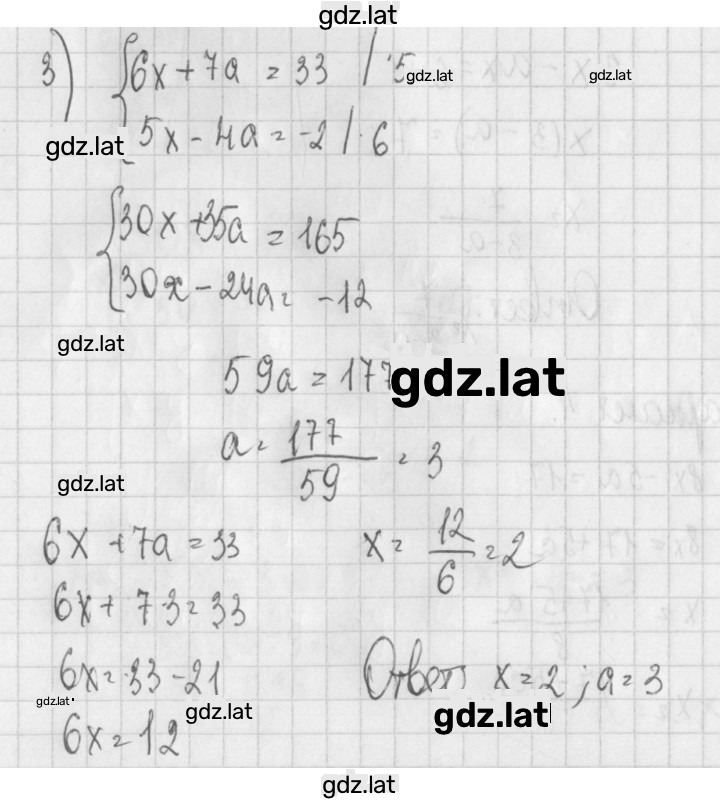 gdz.lat
3) { 6x + 7a = 33 | ·5
gdz.lat gdz.lat
5x - 4a = -2 | · 6
gdz.lat
{ 30x + 35a = 165
30x - 24a = -12
gdz.lat
59a = 177
gdz.lat
a = 177/59 = 3
gdz.lat
6x + 7a = 33
6x + 7·3 = 33
6x = 33 - 21
6x = 12
x = 12/6 = 2
Ответ x = 2 ; a = 3
gdz.lat
gdz.lat
gdz.lat
gdz.lat